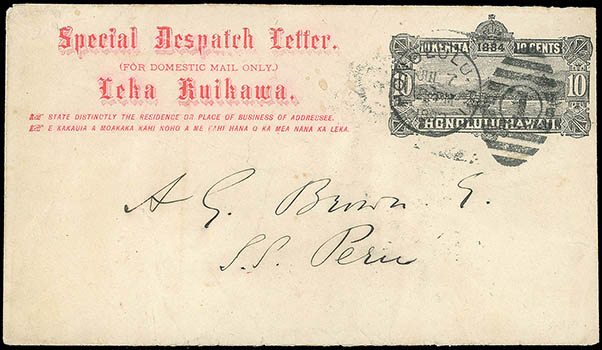 Special Despatch Letter.
(FOR DOMESTIC MAIL ONLY.)
Leka Kuikawa.
STATE DISTINCTLY THE RESIDENCE OR PLACE OF BUSINESS OF ADDRESSEE.
E KAKAUIA A MOAKAKA KAHI NOHO A ME KAHI HANA O KA MEA NANA KA LEKA.
10 KENETA 1884 10 CENTS
10 10
HONOLULU HAWAII
HONOLULU
1
A G. Brown
S.S. Peru